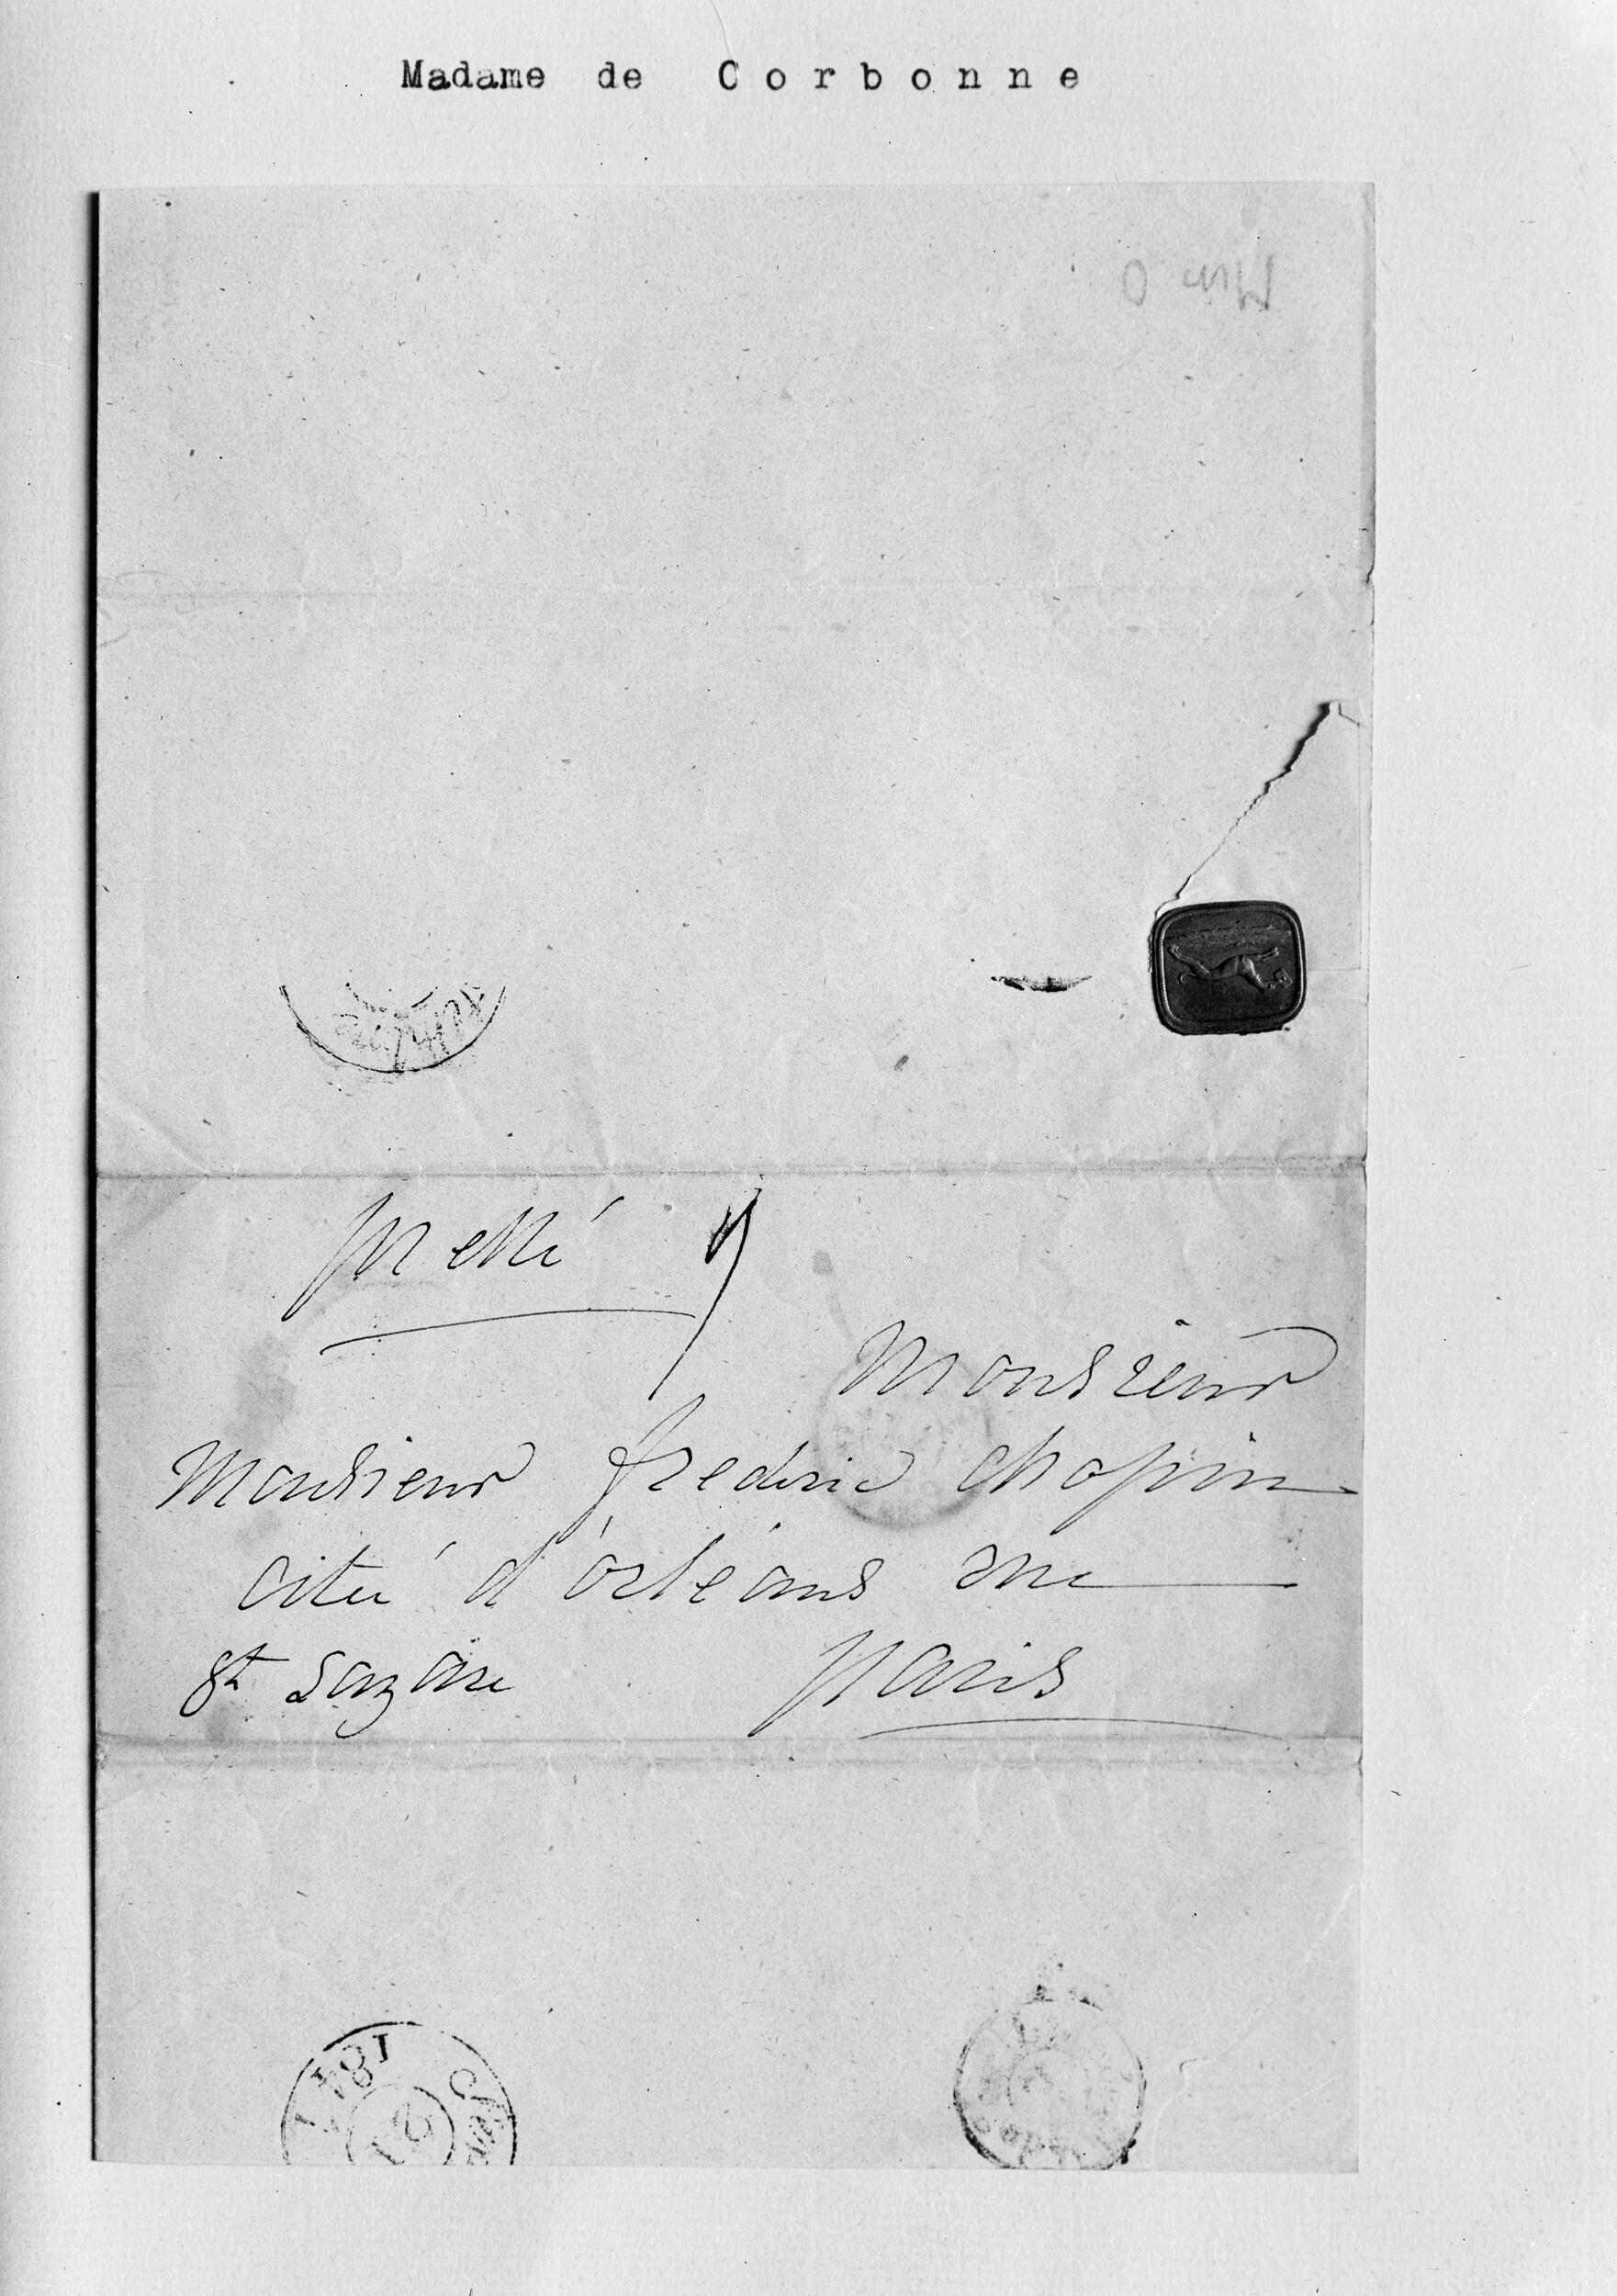 Madame de Corbonne
Monsieur
Monsieur frederic chopin
cité d'orléans rue
St Lazare Paris
1847
21